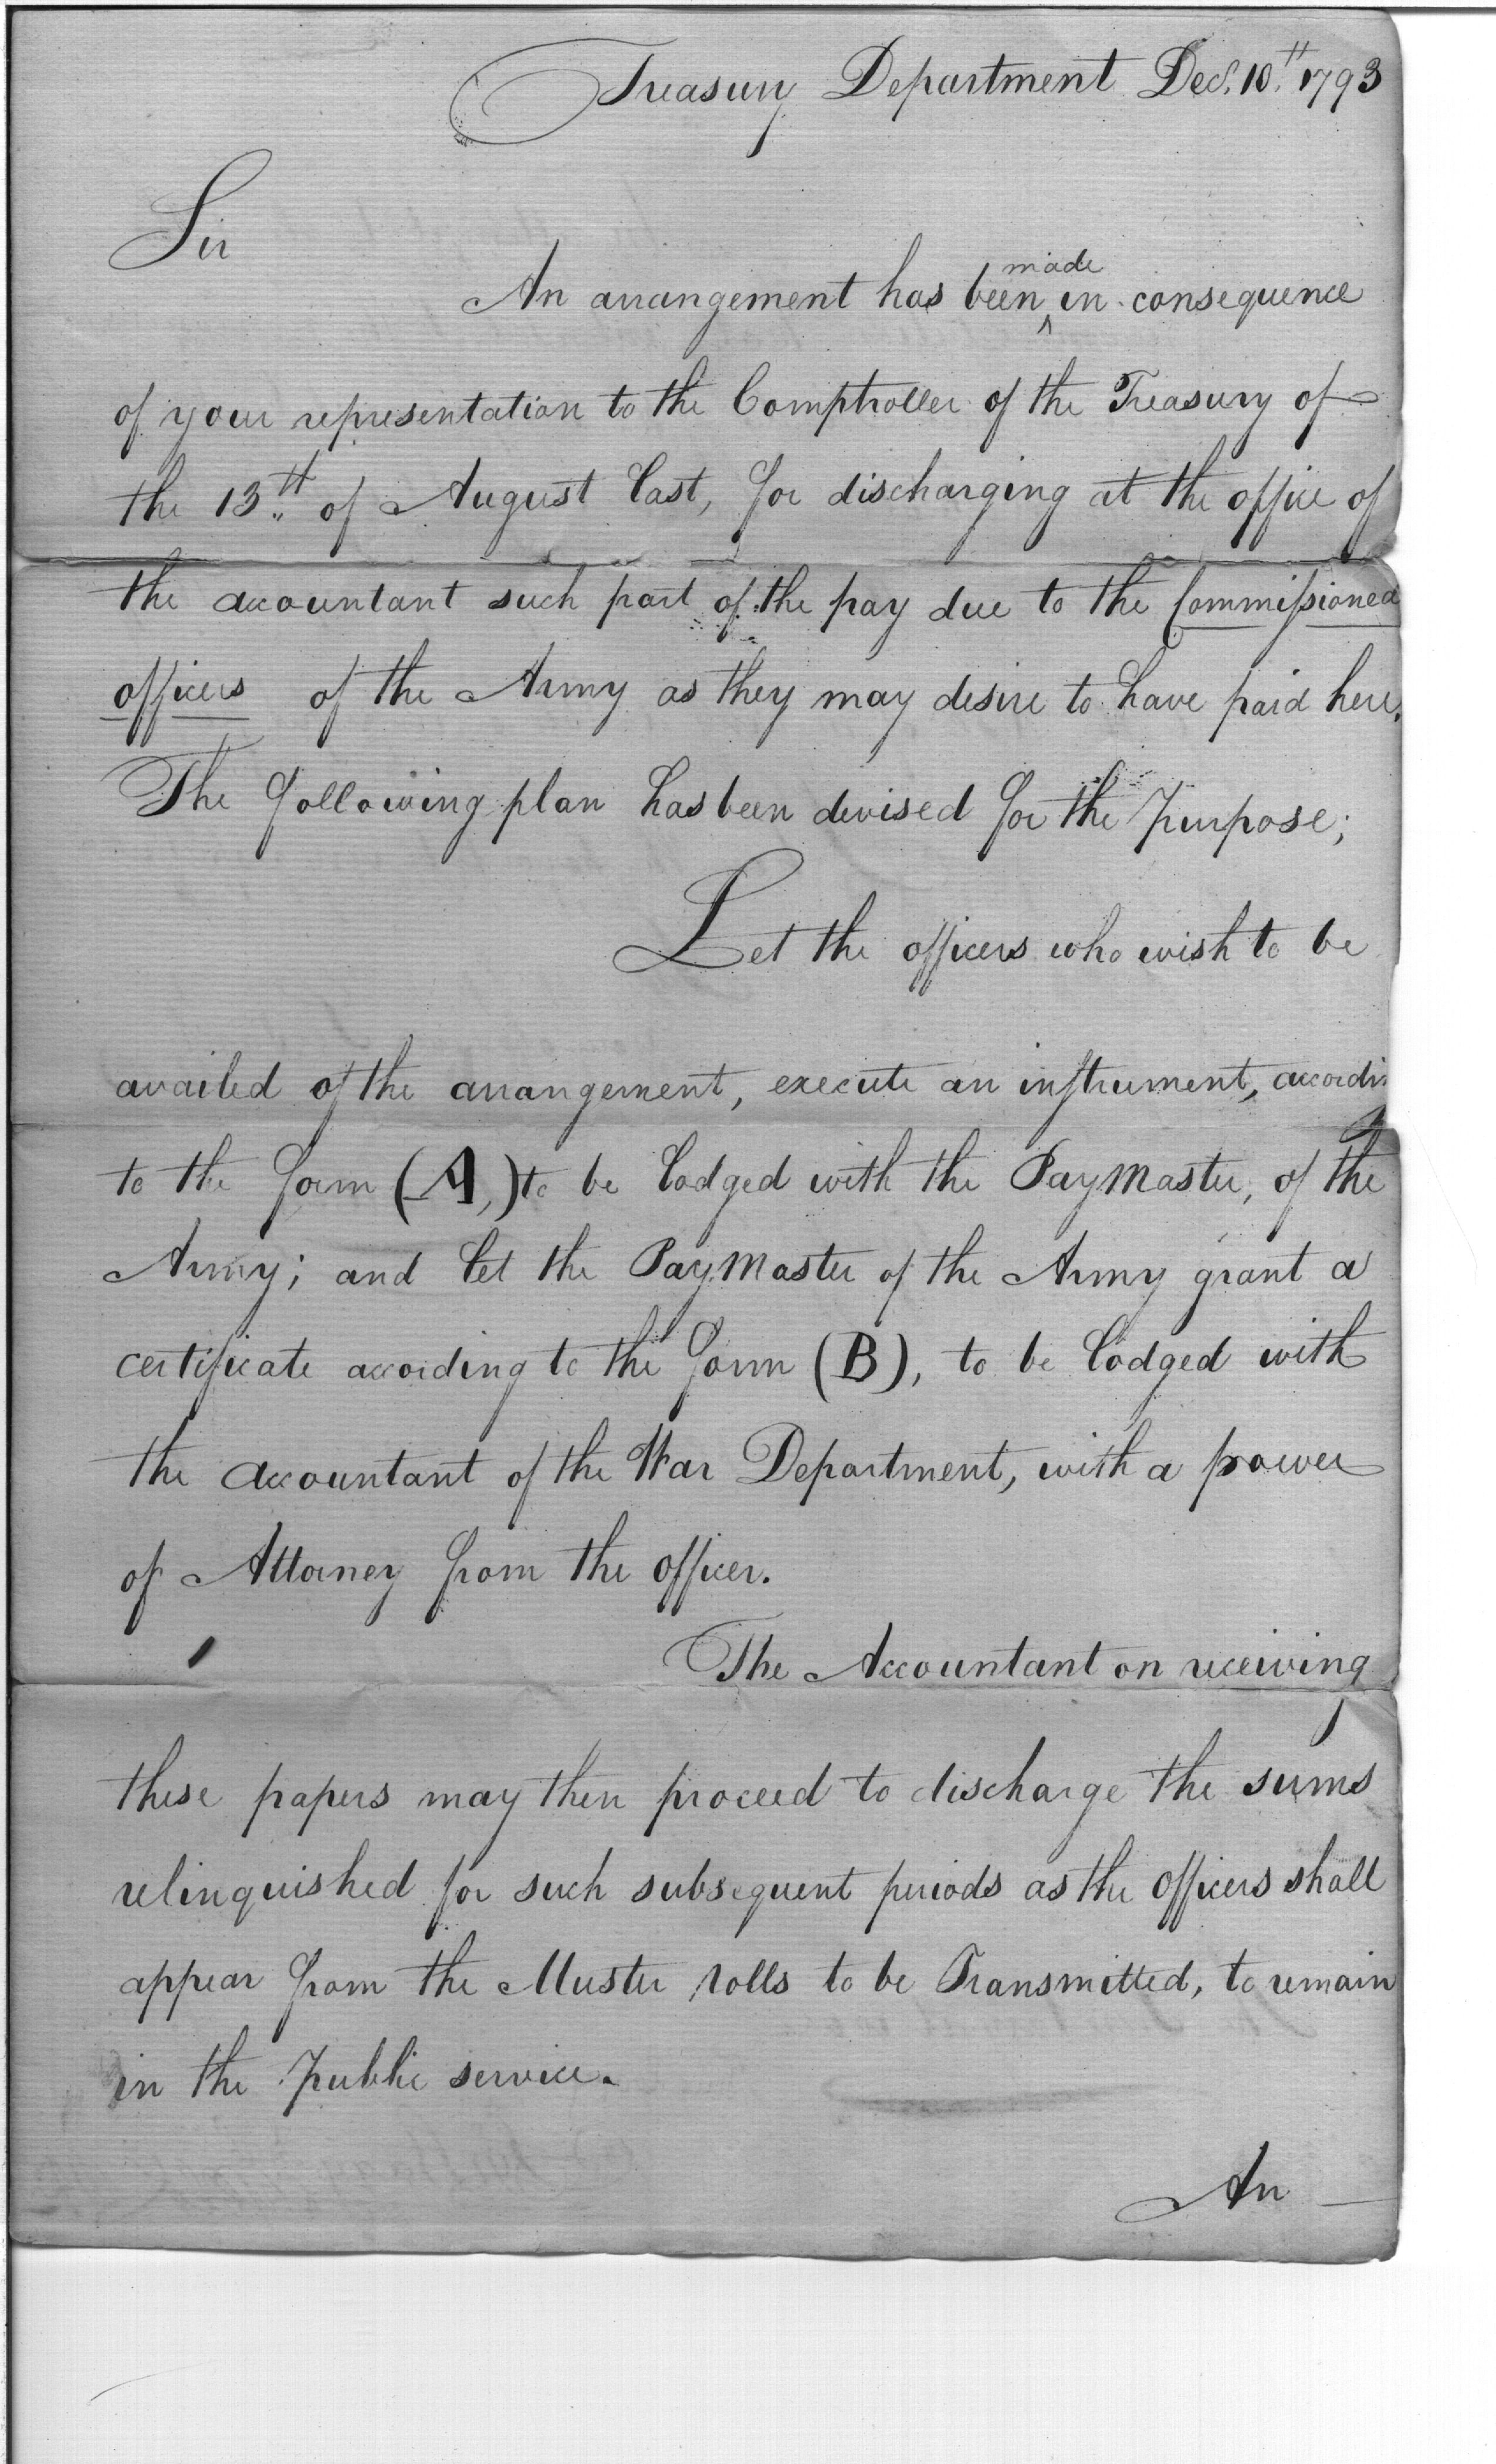 Treasury Department Decr. 10th 1793
Sir
An arrangement has been made in consequence
of your representation to the Comptroller of the Treasury of
the 13th of August last, for discharging at the office of
the accountant such part of the pay due to the Commissioned
officers of the Army as they may desire to have paid here.
The following plan has been devised for the Purpose;
Let the officers who wish to be
availed of the arrangement, execute an instrument, according
to the form (A,) to be lodged with the PayMaster, of the
Army; and let the PayMaster of the Army grant a
certificate according to the form (B), to be lodged with
the accountant of the War Department, with a power
of Attorney from the officer.
The Accountant on receiving
these papers may then proceed to discharge the sums
relinquished for such subsequent periods as the officers shall
appear from the Muster rolls to be Transmitted, to remain
in the Public service.
An